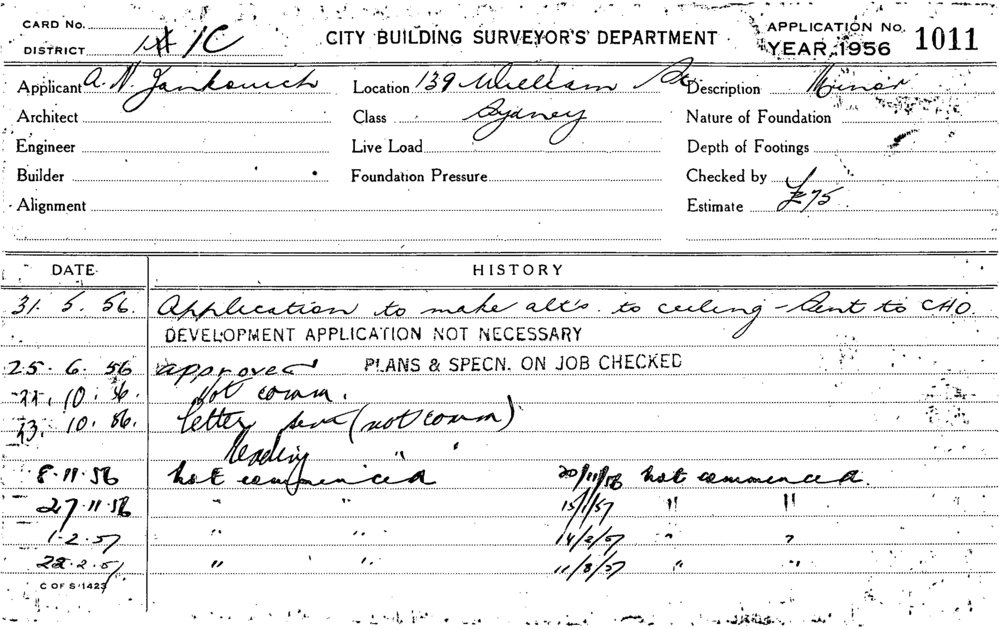 CARD No.
DISTRICT 1C
CITY BUILDING SURVEYOR'S DEPARTMENT
APPLICATION No. 1011
YEAR 1956
Applicant A. N. Jankovich
Location 139 William St
Description Minor
Architect
Class Sydney
Nature of Foundation
Engineer
Live Load
Depth of Footings
Builder
Foundation Pressure
Checked by
Alignment
Estimate £75
DATE HISTORY
31. 5. 56. Application to make alt's. to ceiling - Sent to CHO.
DEVELOPMENT APPLICATION NOT NECESSARY
25. 6. 56 approved PLANS & SPECN. ON JOB CHECKED
10. 56. Not comm.
23. 10. 56. letter sent (not comm)
8.11.56 not commenced 20/11/56 not commenced
27.11.56 " " 15/1/57 " "
1.2.57 " " 14/2/57 " "
22.2.57 " " 11/8/57 " "
C OF S.1423